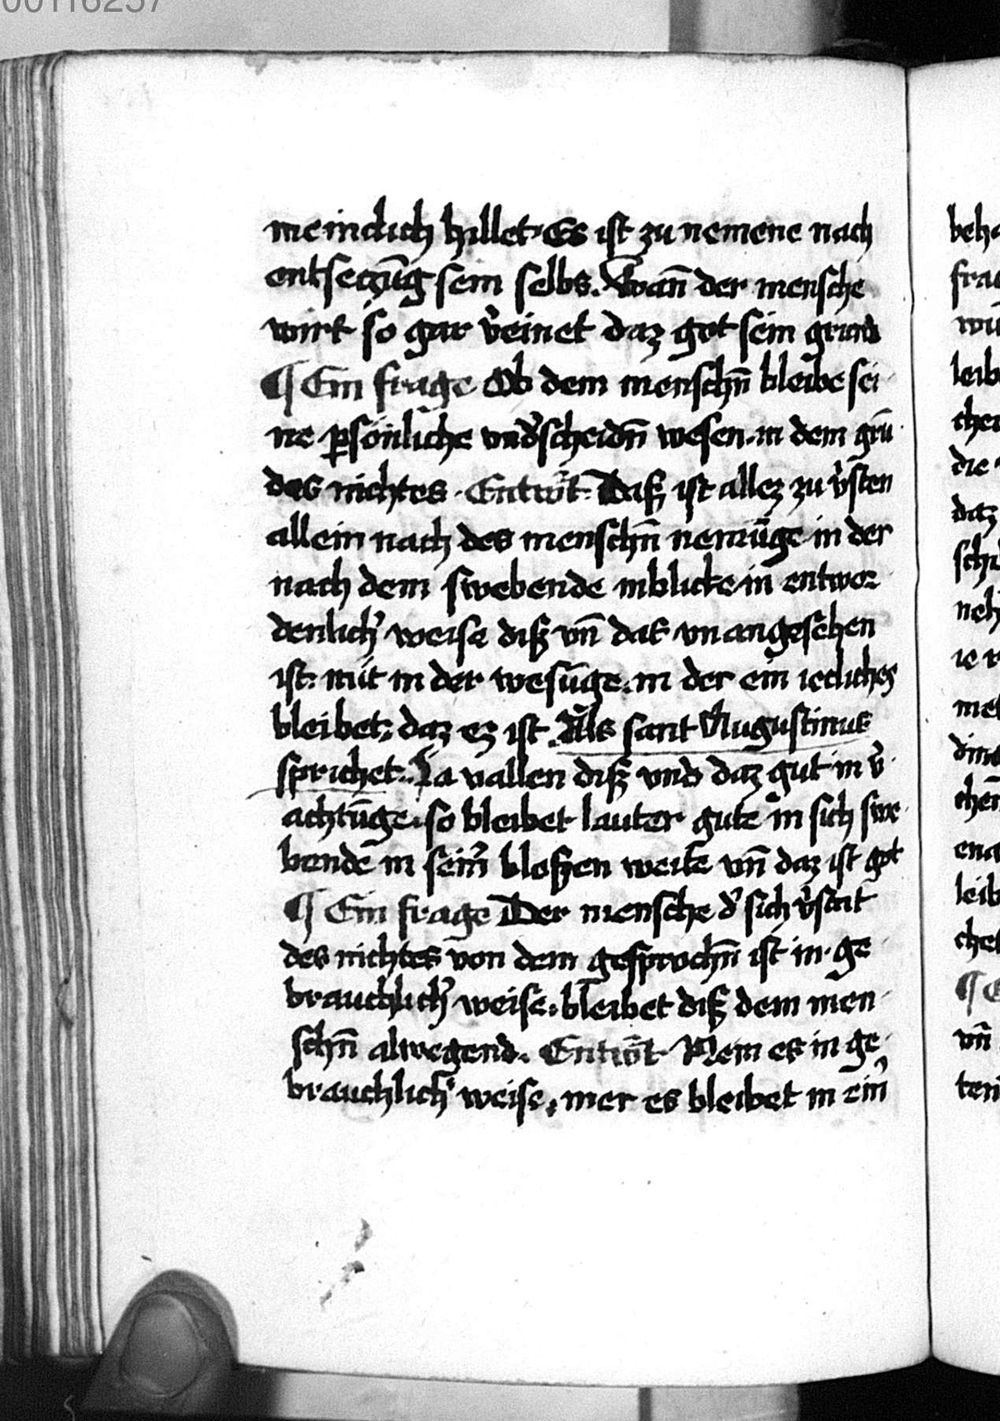 00116257
meinclich hillet · Es ist zu nemene nach
entseczūg sein selbs. Wan̄ der mensche
wirt so gar v̓einet daz got sein grund
¶ Ein frage Ob dem menschn̄ bleibe sei
ne ꝑsönliche vnd̓scheidn̄ wesen. in dem grū
des nichtes · Entwōt · Daß ist allez zu v̓sten
allein nach des menschn̄ nemūge in der
nach dem swebende inblicke in entwor
denlich̓ weise diß vn̄ das vnangesehen
ist: nüt in der wesūge. in der ein iecliches
bleibet: daz ez ist. Als sant Augustinus
sprichet. La vallen diß vnd daz gut in v̓
achtūge. so bleibet lauter gute in sich swe
bende in seim̄ bloßen weite vn̄ daz ist got
¶ Ein frage Der mensche d̓ sich v̓stat
des nichtes von dem gesprochn̄ ist in · ge
brauchlich̓ weise. bleibet diß dem men
schn̄ alwegend. Entwōt · Nem es in ge
brauchlich̓ weise. mer es bleibet in ein̓
leib
die
daz
met
ena
leib
¶
vn̄